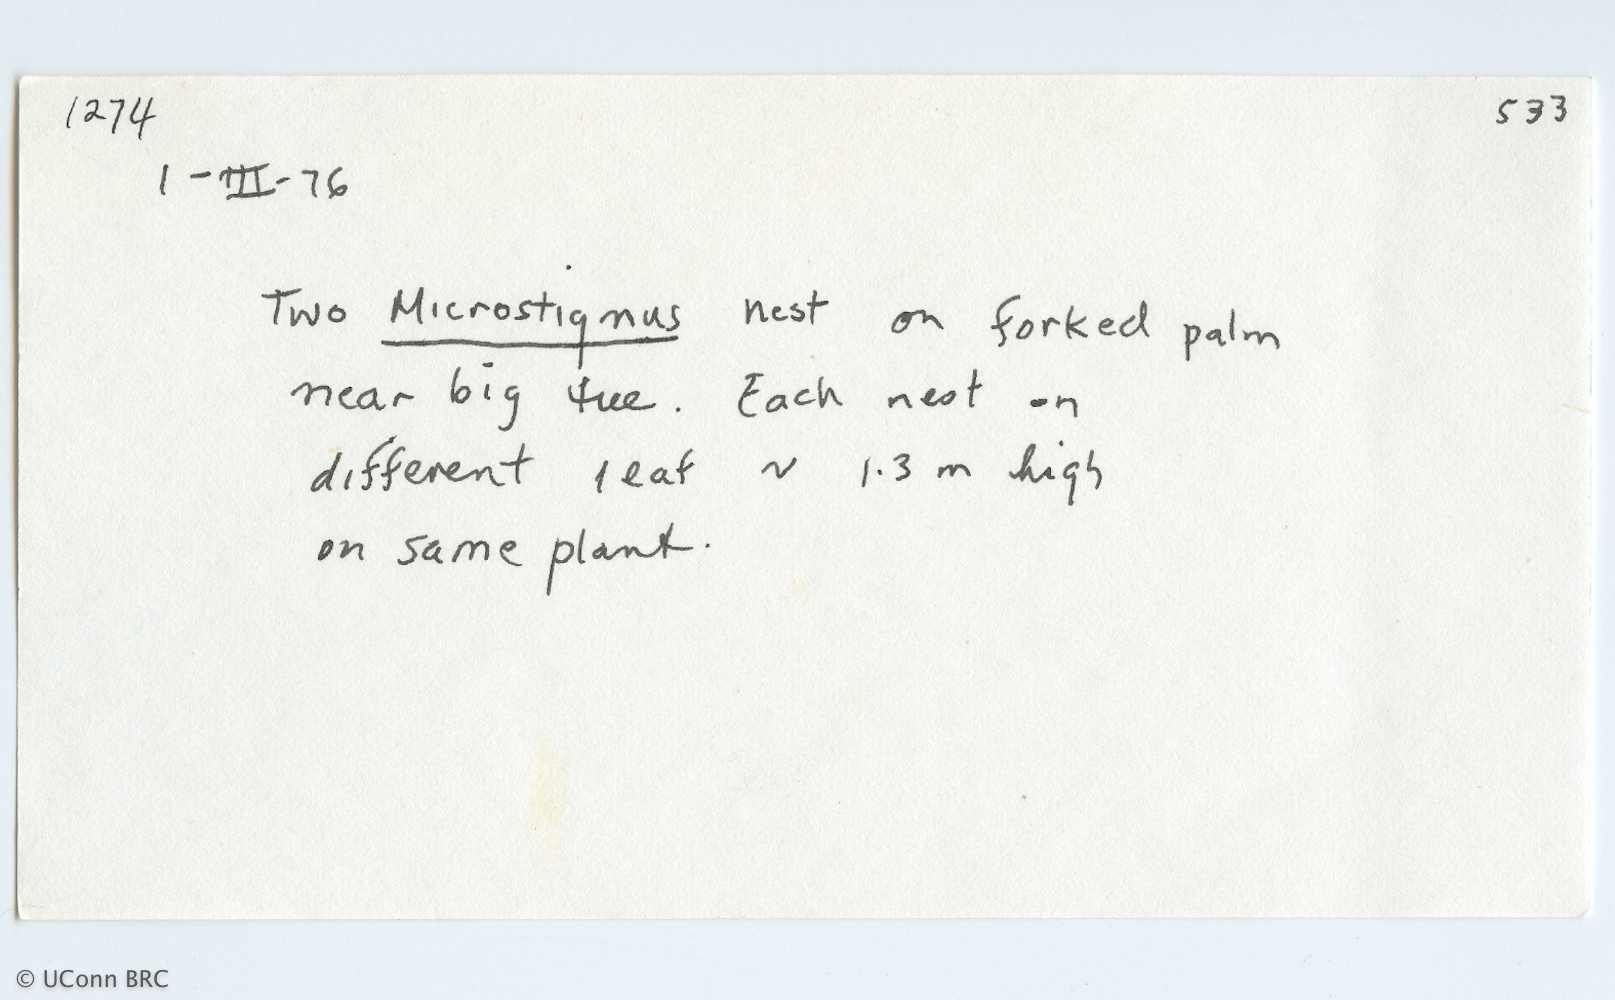 1274
533
1-III-76
Two Microstigmus nest on forked palm
near big tree. Each nest on
different leaf ~ 1.3 m high
on same plant.
© UConn BRC